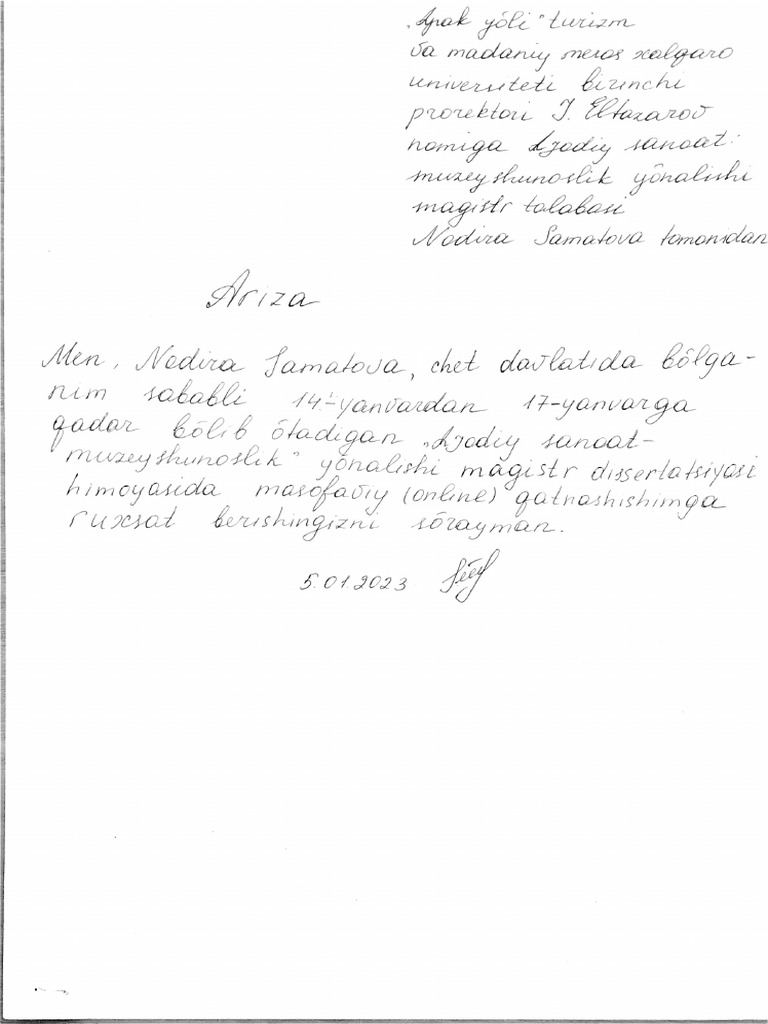 „Ipak yõli" turizm
va madaniy meros xalqaro
universiteti birinchi
prorektori J. Eltazarov
nomiga Ijodiy sanoat:
muzeyshunoslik yõnalishi
magistr talabasi
Nodira Samatova tomonidan
Ariza
Men, Nodira Samatova, chet davlatida bõlga-
nim sababli 14-yanvardan 17-yanvarga
qadar bõlib õtadigan „Ijodiy sanoat-
muzeyshunoslik" yõnalishi magistr dissertatsiyasi
himoyasida masofaviy (online) qatnashishimga
ruxsat berishingizni sõrayman.
5.01.2023